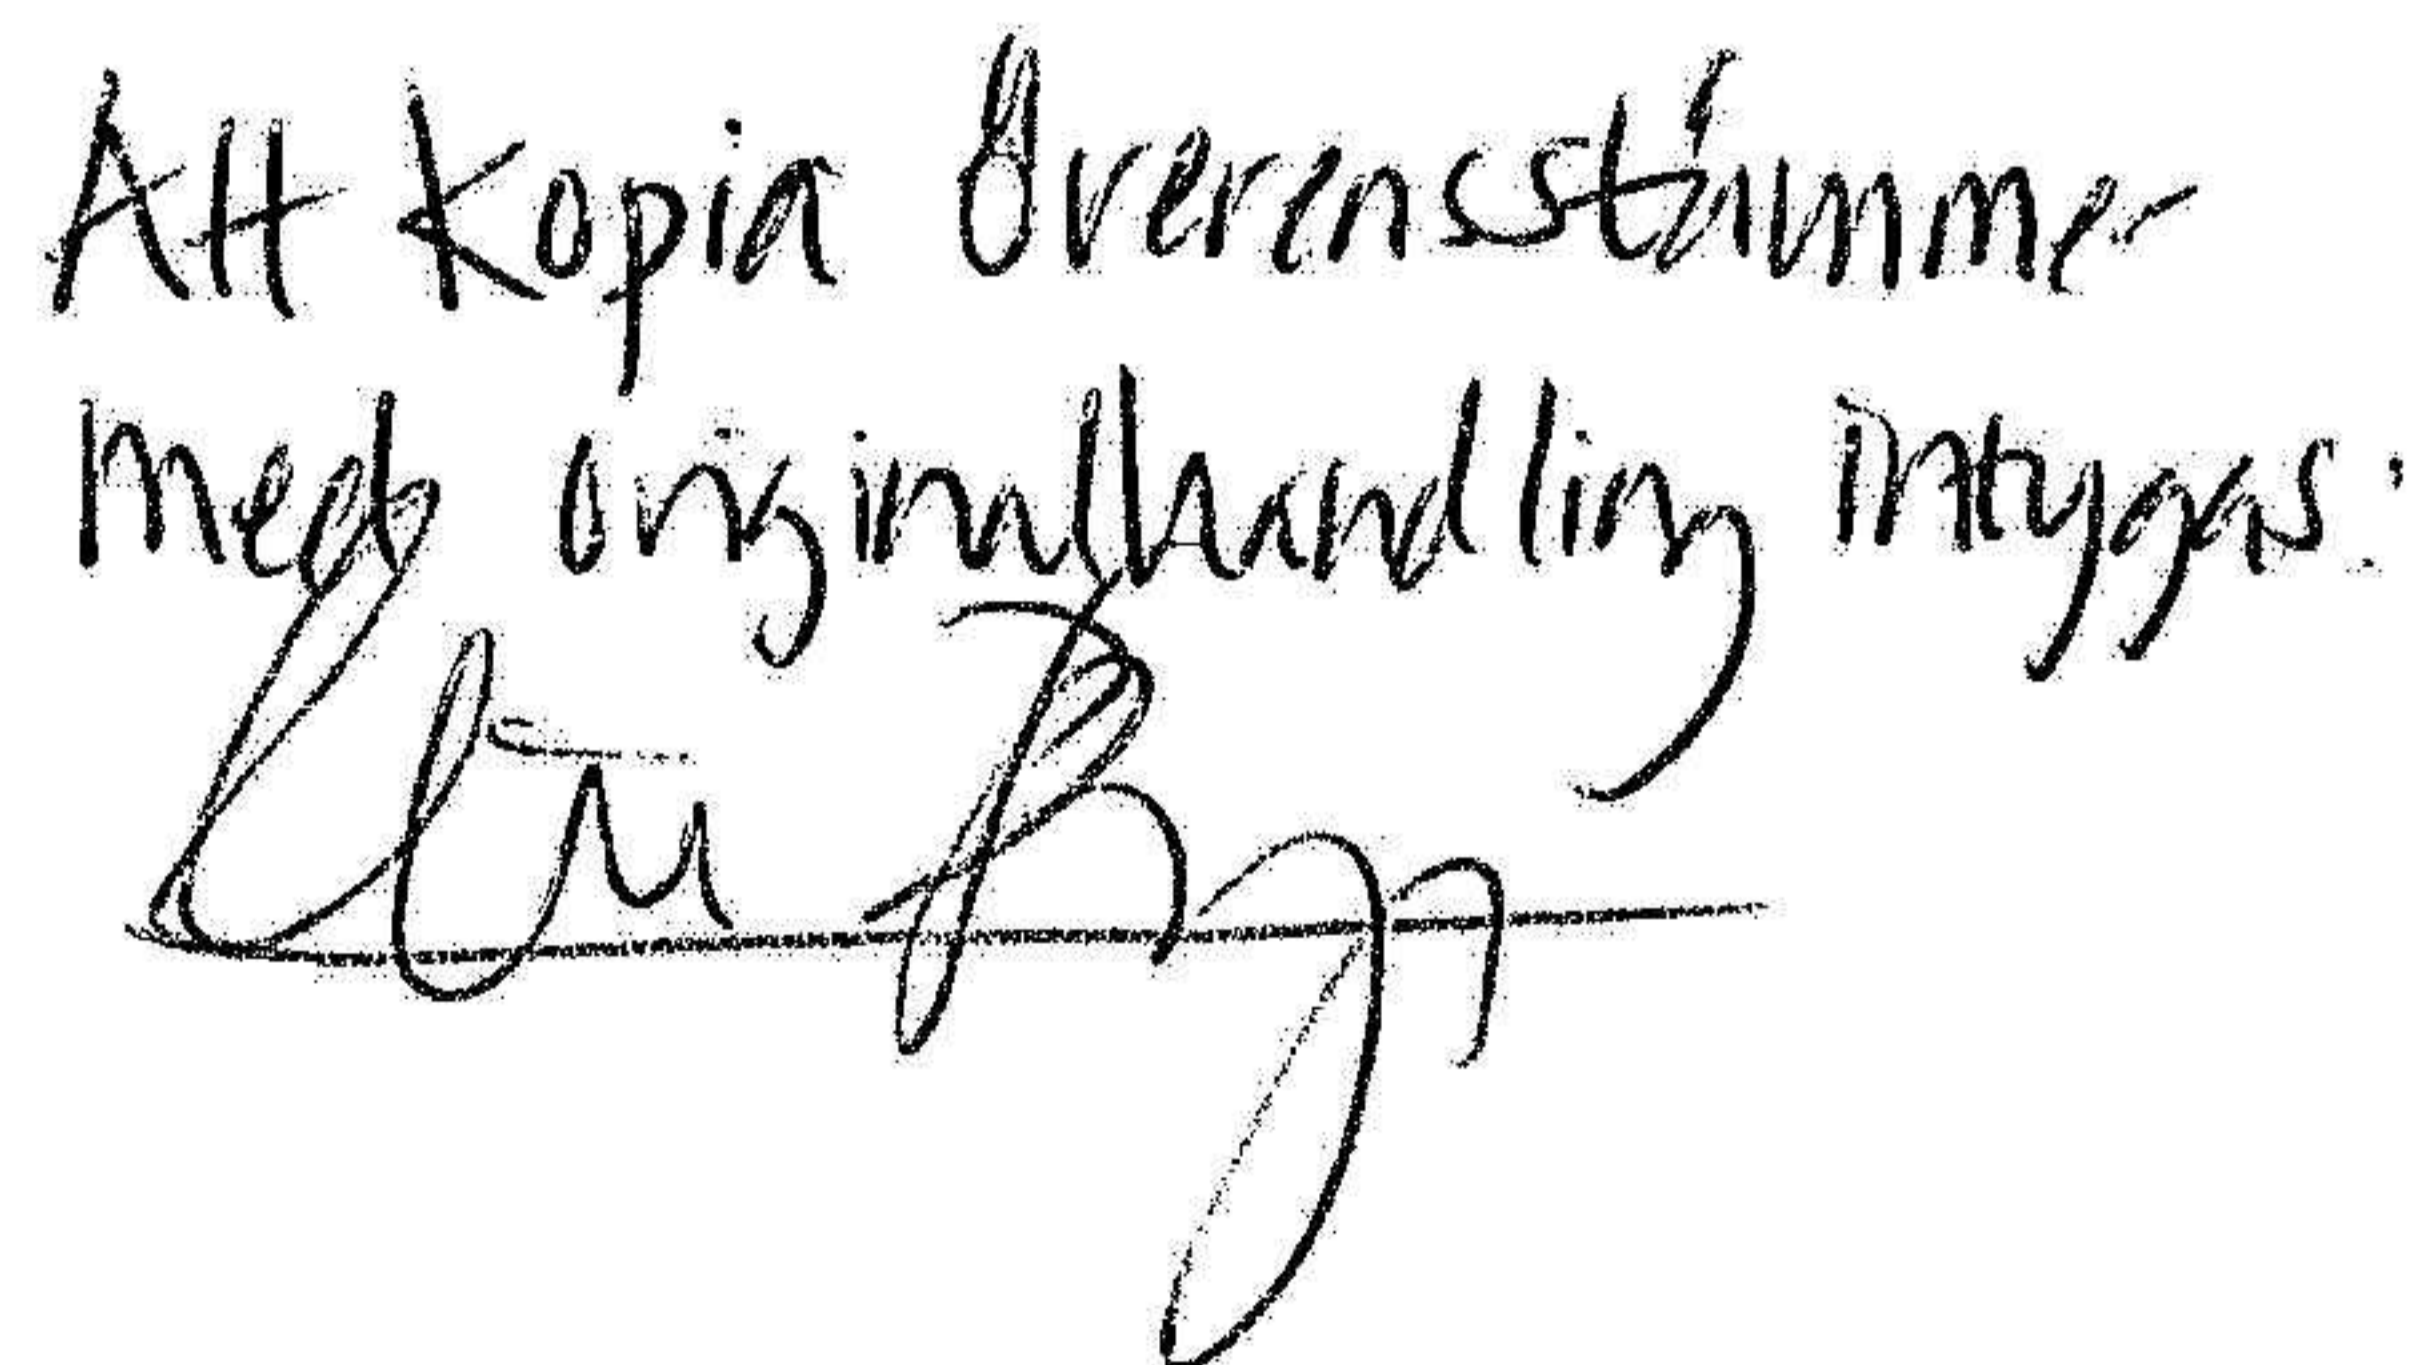 Att Kopia Överensstämmer
med originalhandling intygas: